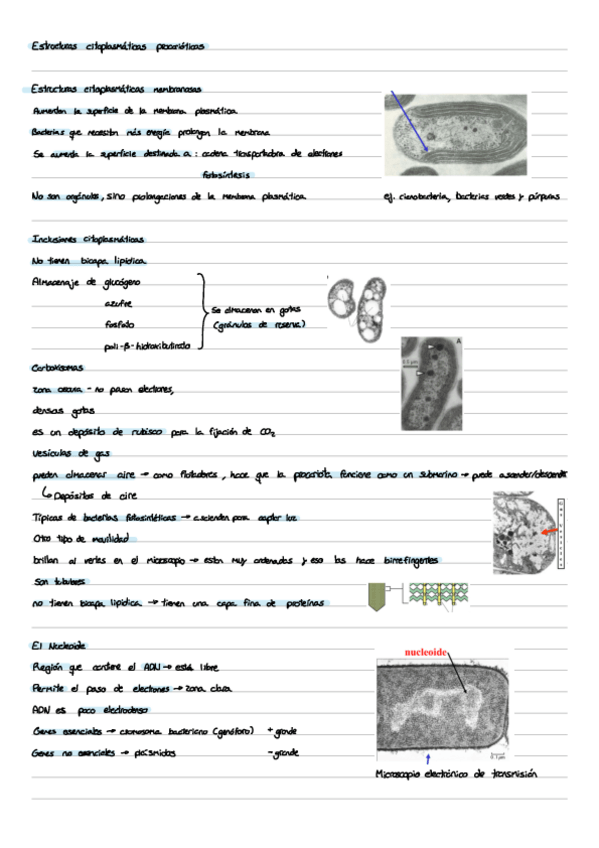 Estructuras citoplasmáticas procarióticas
Estructuras citoplasmáticas membranosas
Aumentan la superficie de la membrana plasmática
Bacterias que necesitan más energía prolongan la membrana
Se aumenta la superficie destinada a : cadena transportadora de electrones
fotosíntesis
No son orgánulos, sino prolongaciones de la membrana plasmática
ej. cianobacteria, bacterias verdes y púrpuras
Inclusiones citoplasmáticas
No tienen bicapa lipídica
Almacenaje de glucógeno
azufre
fosfato
poli-β-hidroxibutirato
Se almacenan en gotas
(gránulos de reserva)
Carboxisomas
A
0.5 µm
zona oscura - no pasan electrones,
densas gotas
es un depósito de rubisco para la fijación de CO2
Vesículas de gas
pueden almacenar aire → como flotadores, hace que la procariota funcione como un submarino → puede ascender/descender
↳ Depósitos de aire
Típicas de bacterias fotosintéticas → ascienden para captar luz
Otro tipo de movilidad
brillan al verles en el microscopio → estan muy ordenados y eso las hace birrefingentes
Son tubulares
no tienen bicapa lipídica → tienen una capa fina de proteínas
El Nucleoide
nucleoide
Región que contiene el ADN → está libre
Permite el paso de electrones → zona clara
ADN es poco electrodenso
Genes esenciales → cromosoma bacteriano (genóforo) + grande
Genes no esenciales → plásmidos - grande
0.1µm
Microscopio electrónico de transmisión